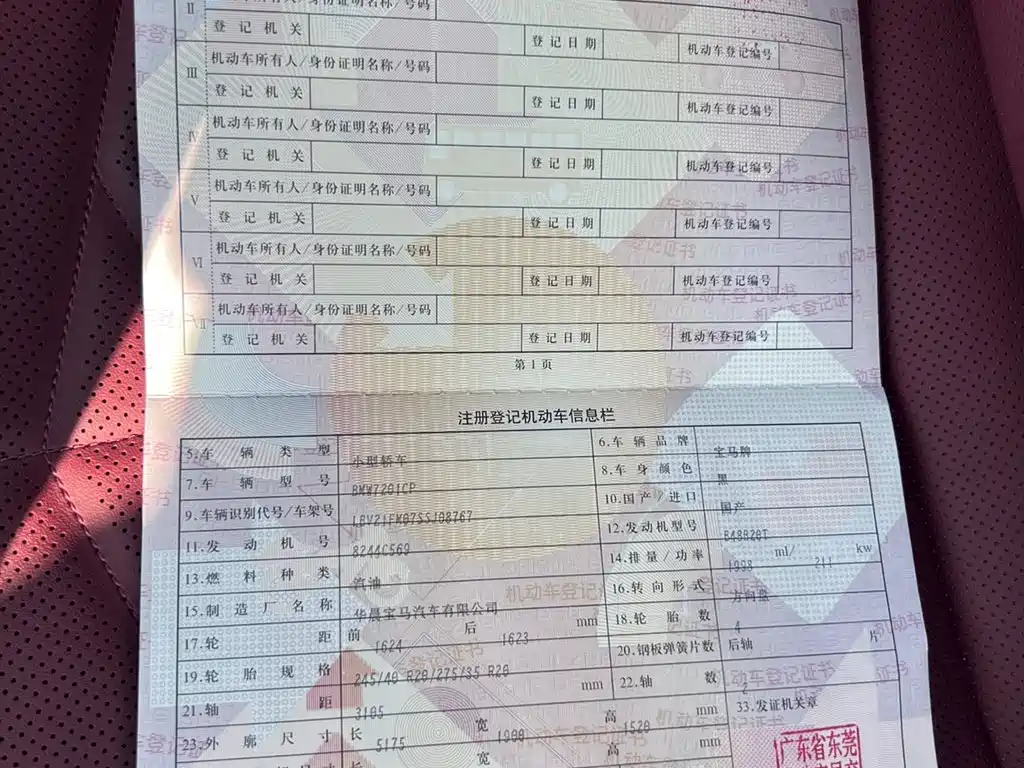 II 机动车所有人/身份证明名称/号码
登记机关 登记日期 机动车登记编号
III 机动车所有人/身份证明名称/号码
登记机关 登记日期 机动车登记编号
IV 机动车所有人/身份证明名称/号码
登记机关 登记日期 机动车登记编号
V 机动车所有人/身份证明名称/号码
登记机关 登记日期 机动车登记编号
VI 机动车所有人/身份证明名称/号码
登记机关 登记日期 机动车登记编号
VII 机动车所有人/身份证明名称/号码
登记机关 登记日期 机动车登记编号
第1页
注册登记机动车信息栏
5.车辆类型 小型轿车 6.车辆品牌 宝马牌
7.车辆型号 BMW7201CP 8.车身颜色 黑
9.车辆识别代号/车架号 10.国产/进口 国产
11.发动机号 8244C569 12.发动机型号 B48B20T
13.燃料种类 汽油 14.排量/功率 1998 ml/ 211 kw
15.制造厂名称 华晨宝马汽车有限公司 16.转向形式 方向盘
17.轮距 前 1624 后 1623 mm 18.轮胎数 4
19.轮胎规格 245/40 R20/275/35 R20 20.钢板弹簧片数 后轴 片
21.轴距 3105 mm 22.轴数 2
23.外廓尺寸 长 5175 宽 1900 高 1520 mm 33.发证机关章
长 宽 高 mm
广东省东莞